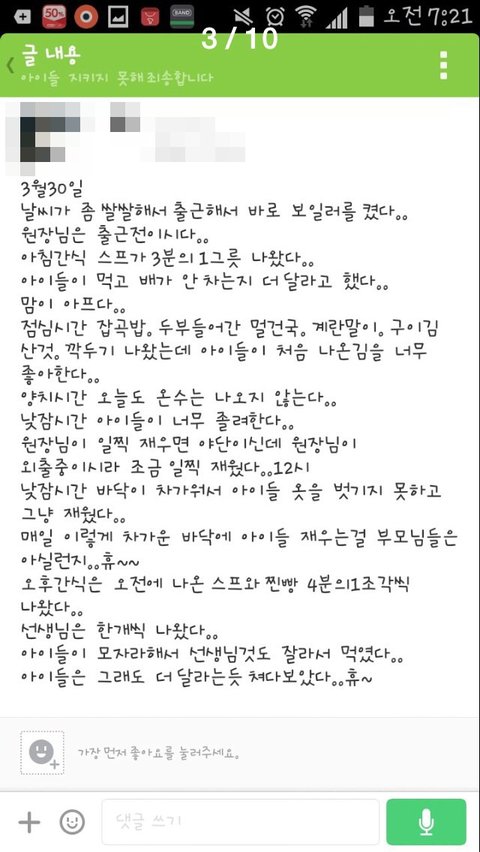 50%
BAND
오전 7:21
3 / 10
글 내용
아이들 지키지 못해 죄송합니다
3월30일
날씨가 좀 쌀쌀해서 출근해서 바로 보일러를 켰다。。
원장님은 출근전이시다。。
아침간식 스프가 3분의1그릇 나왔다。。
아이들이 먹고 배가 안 차는지 더 달라고 했다。。
맘이 아프다。。
점심시간 잡곡밥。두부들어간 멀건국。계란말이。구이김
산것。깍두기 나왔는데 아이들이 처음 나온김을 너무
좋아한다。。
양치시간 오늘도 온수는 나오지 않는다。。
낮잠시간 아이들이 너무 졸려한다。。
원장님이 일찍 재우면 야단이신데 원장님이
외출중이시라 조금 일찍 재웠다。。12시
낮잠시간 바닥이 차가워서 아이들 옷을 벗기지 못하고
그냥 재웠다。。
매일 이렇게 차가운 바닥에 아이들 재우는걸 부모님들은
아실런지。。휴~~
오후간식은 오전에 나온 스프와 찐빵 4분의1조각씩
나왔다。。
선생님은 한개씩 나왔다。。
아이들이 모자라해서 선생님것도 잘라서 먹였다。。
아이들은 그래도 더 달라는듯 쳐다보았다。。휴~
가장 먼저 좋아요를 눌러주세요。
댓글 쓰기